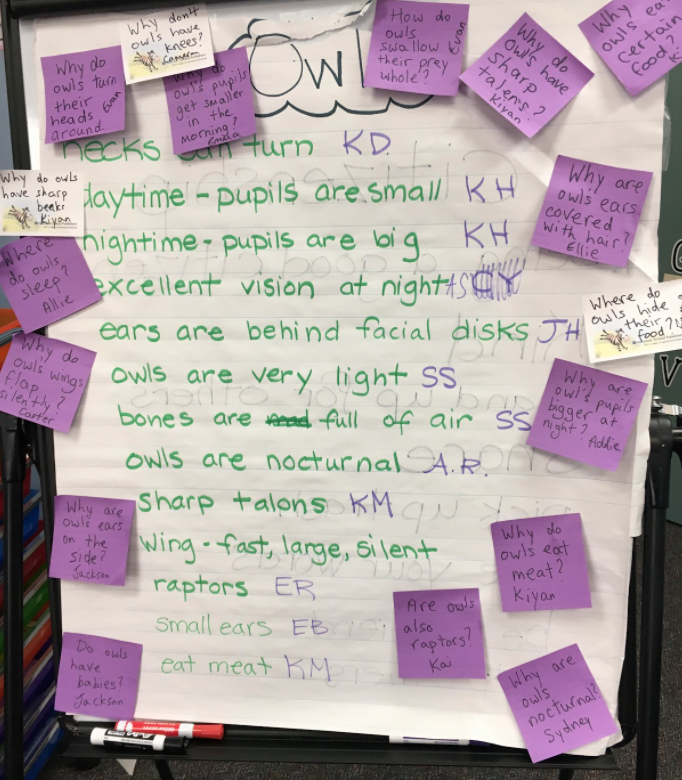 Owl
Why do
owls turn
their
heads
around
Evan
Why don't
owls have
knees?
Cameron
Why do
owls pupils
get smaller
in the
morning?
How do
owls
swallow
their prey
whole?
Evan
Why do
owls have
sharp
talens?
Kiyan
Why
owls eat
certain
food
necks can turn KD
daytime - pupils are small KH
nightime - pupils are big KH
excellent vision at night AS
ears are behind facial disks JH
owls are very light SS
bones are full of air SS
owls are nocturnal A.R.
sharp talons KM
wing - fast, large, silent
raptors ER
small ears EB
eat meat KM
Why do owls
have sharp
beaks
Kiyan
Where
do owls
sleep?
Allie
Why do
owls wings
flap
silently?
Carter
Why are
owls ears
on the
side?
Jackson
Do owls
have
babies?
Jackson
Why are
owls ears
covered
with hair?
Ellie
Where do
owls hide
their
food?
Why are
owls pupils
bigger at
night?
Addie
Why do
owls eat
meat?
Kiyan
Are owls
also
raptors?
Kai
Why are
owls
nocturnal?
Sydney